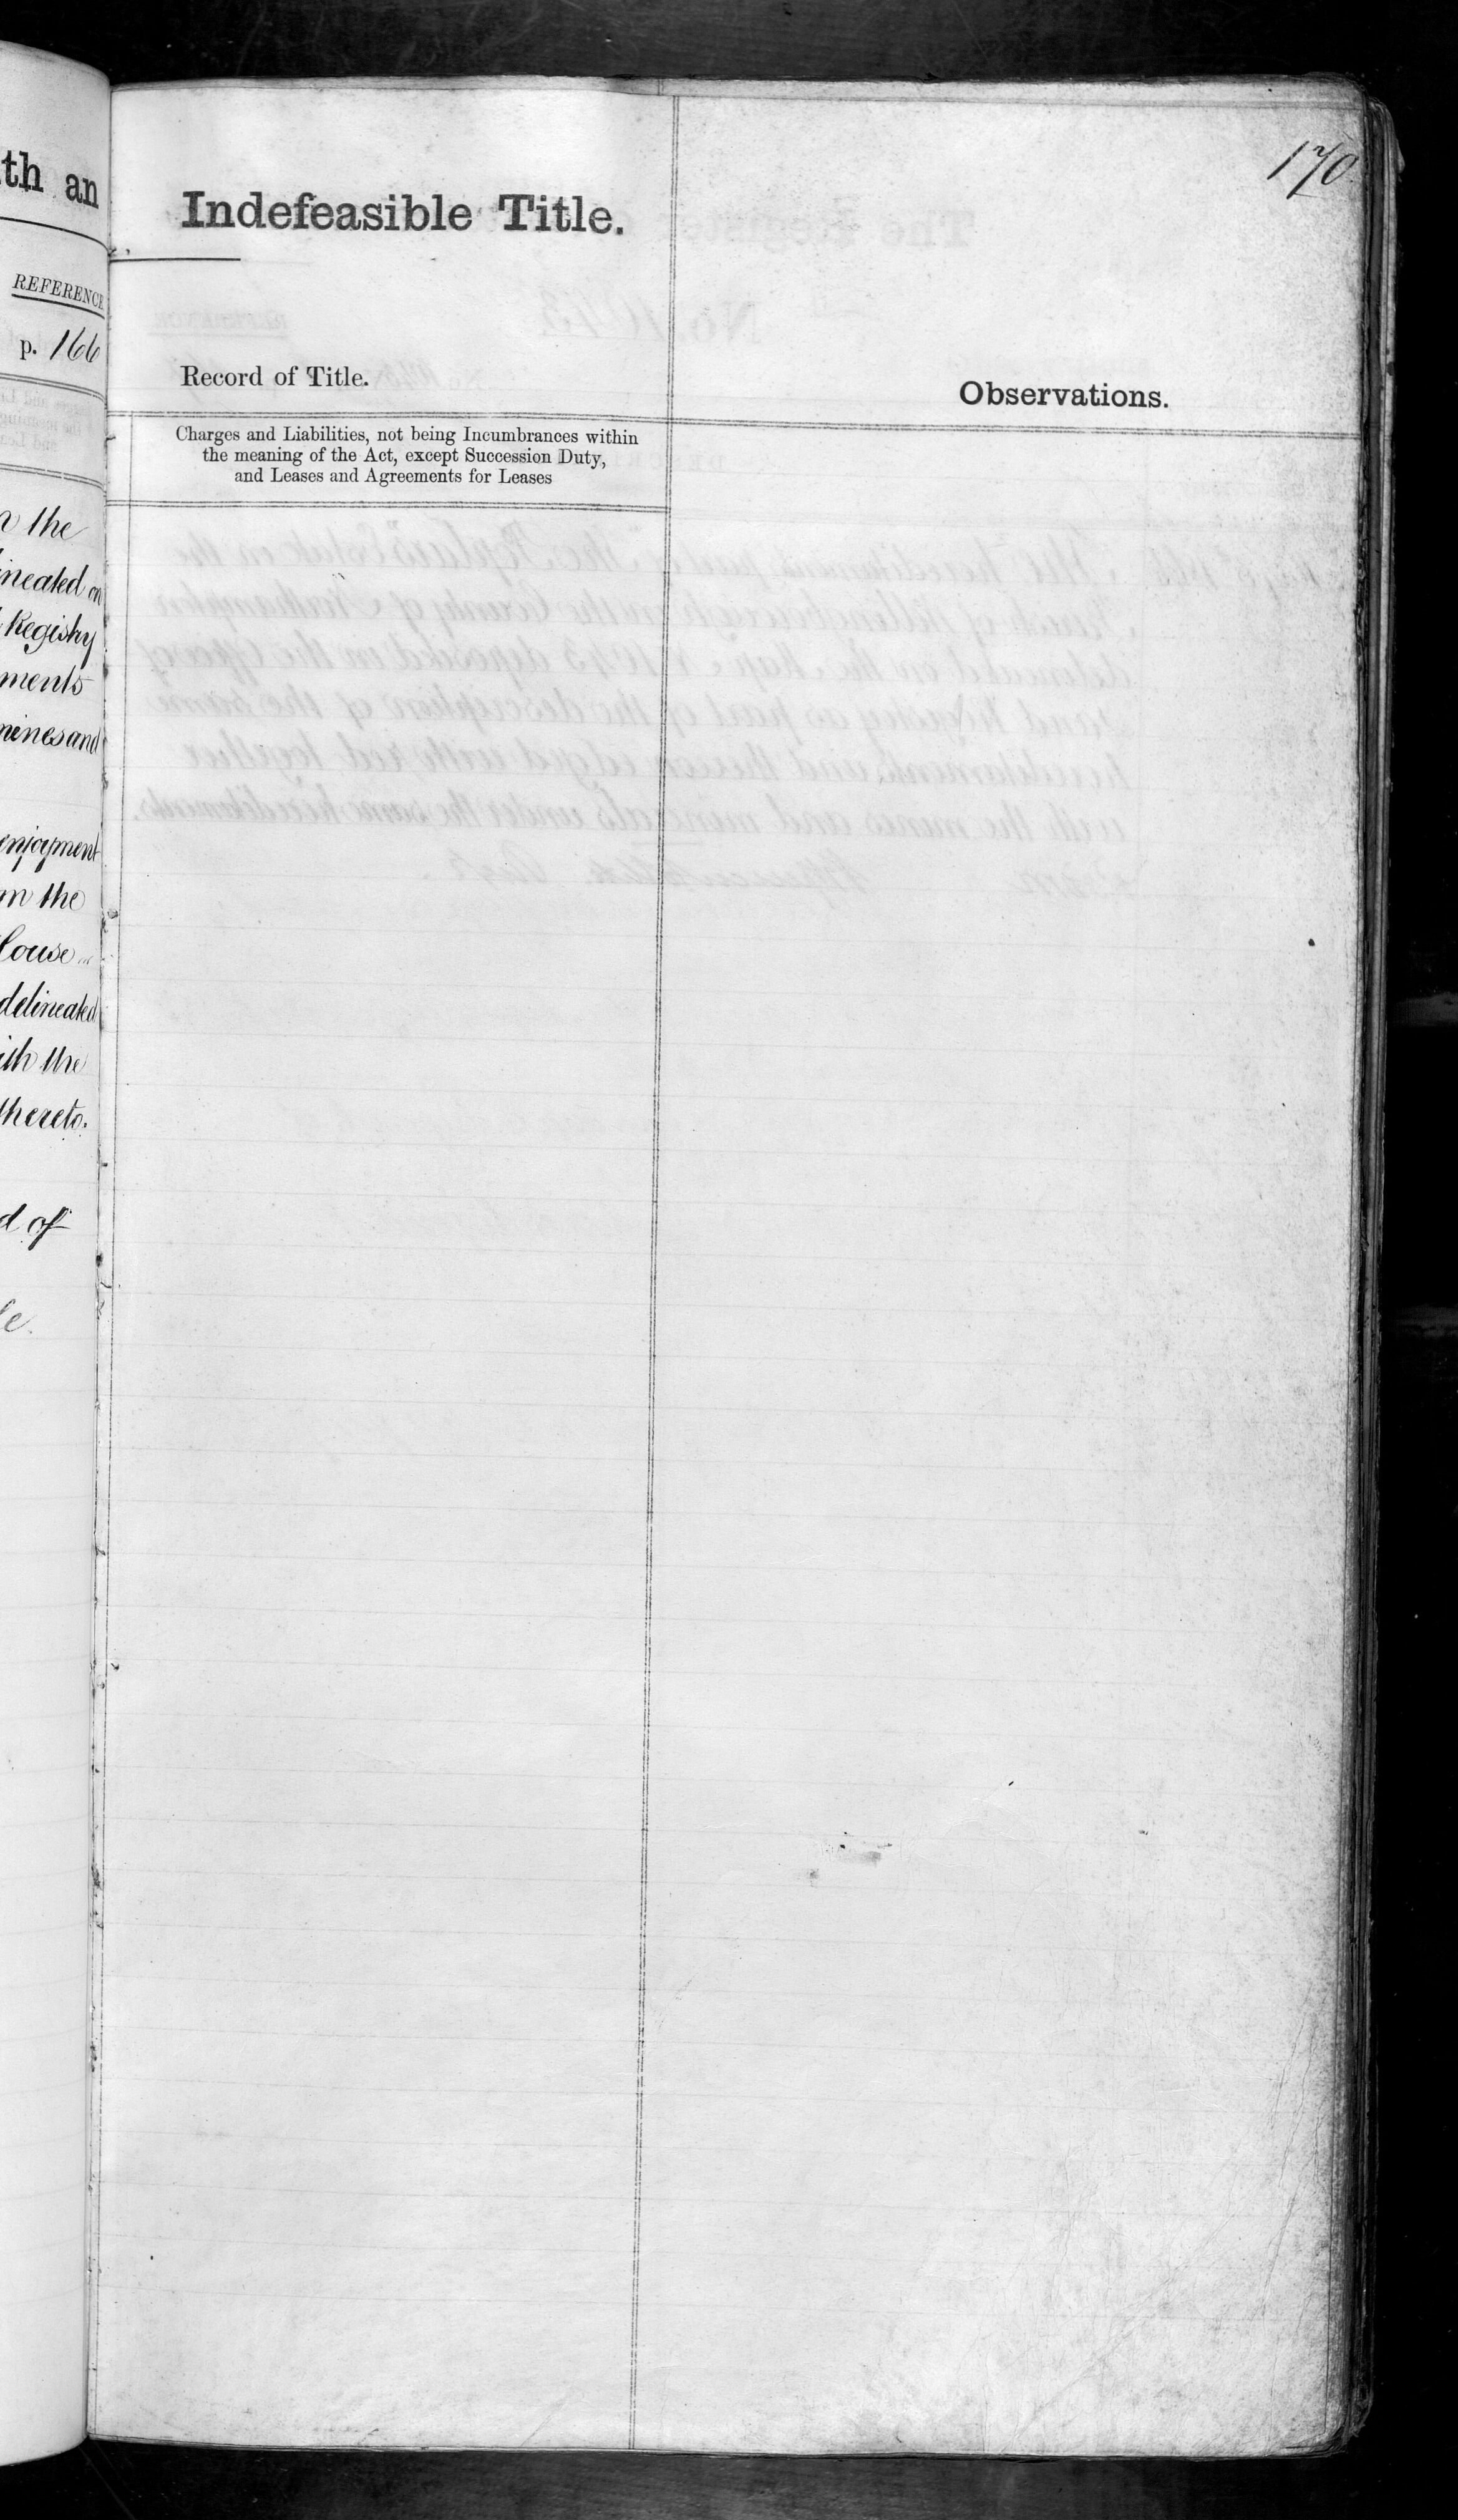 th an
REFERENCE
p. 166
the
ineated on
Registry
ments
mines and
enjoyment
the
House
delineated
ith the
thereto.
d of
170
Indefeasible Title.
Record of Title.
Observations.
Charges and Liabilities, not being Incumbrances within
the meaning of the Act, except Succession Duty,
and Leases and Agreements for Leases